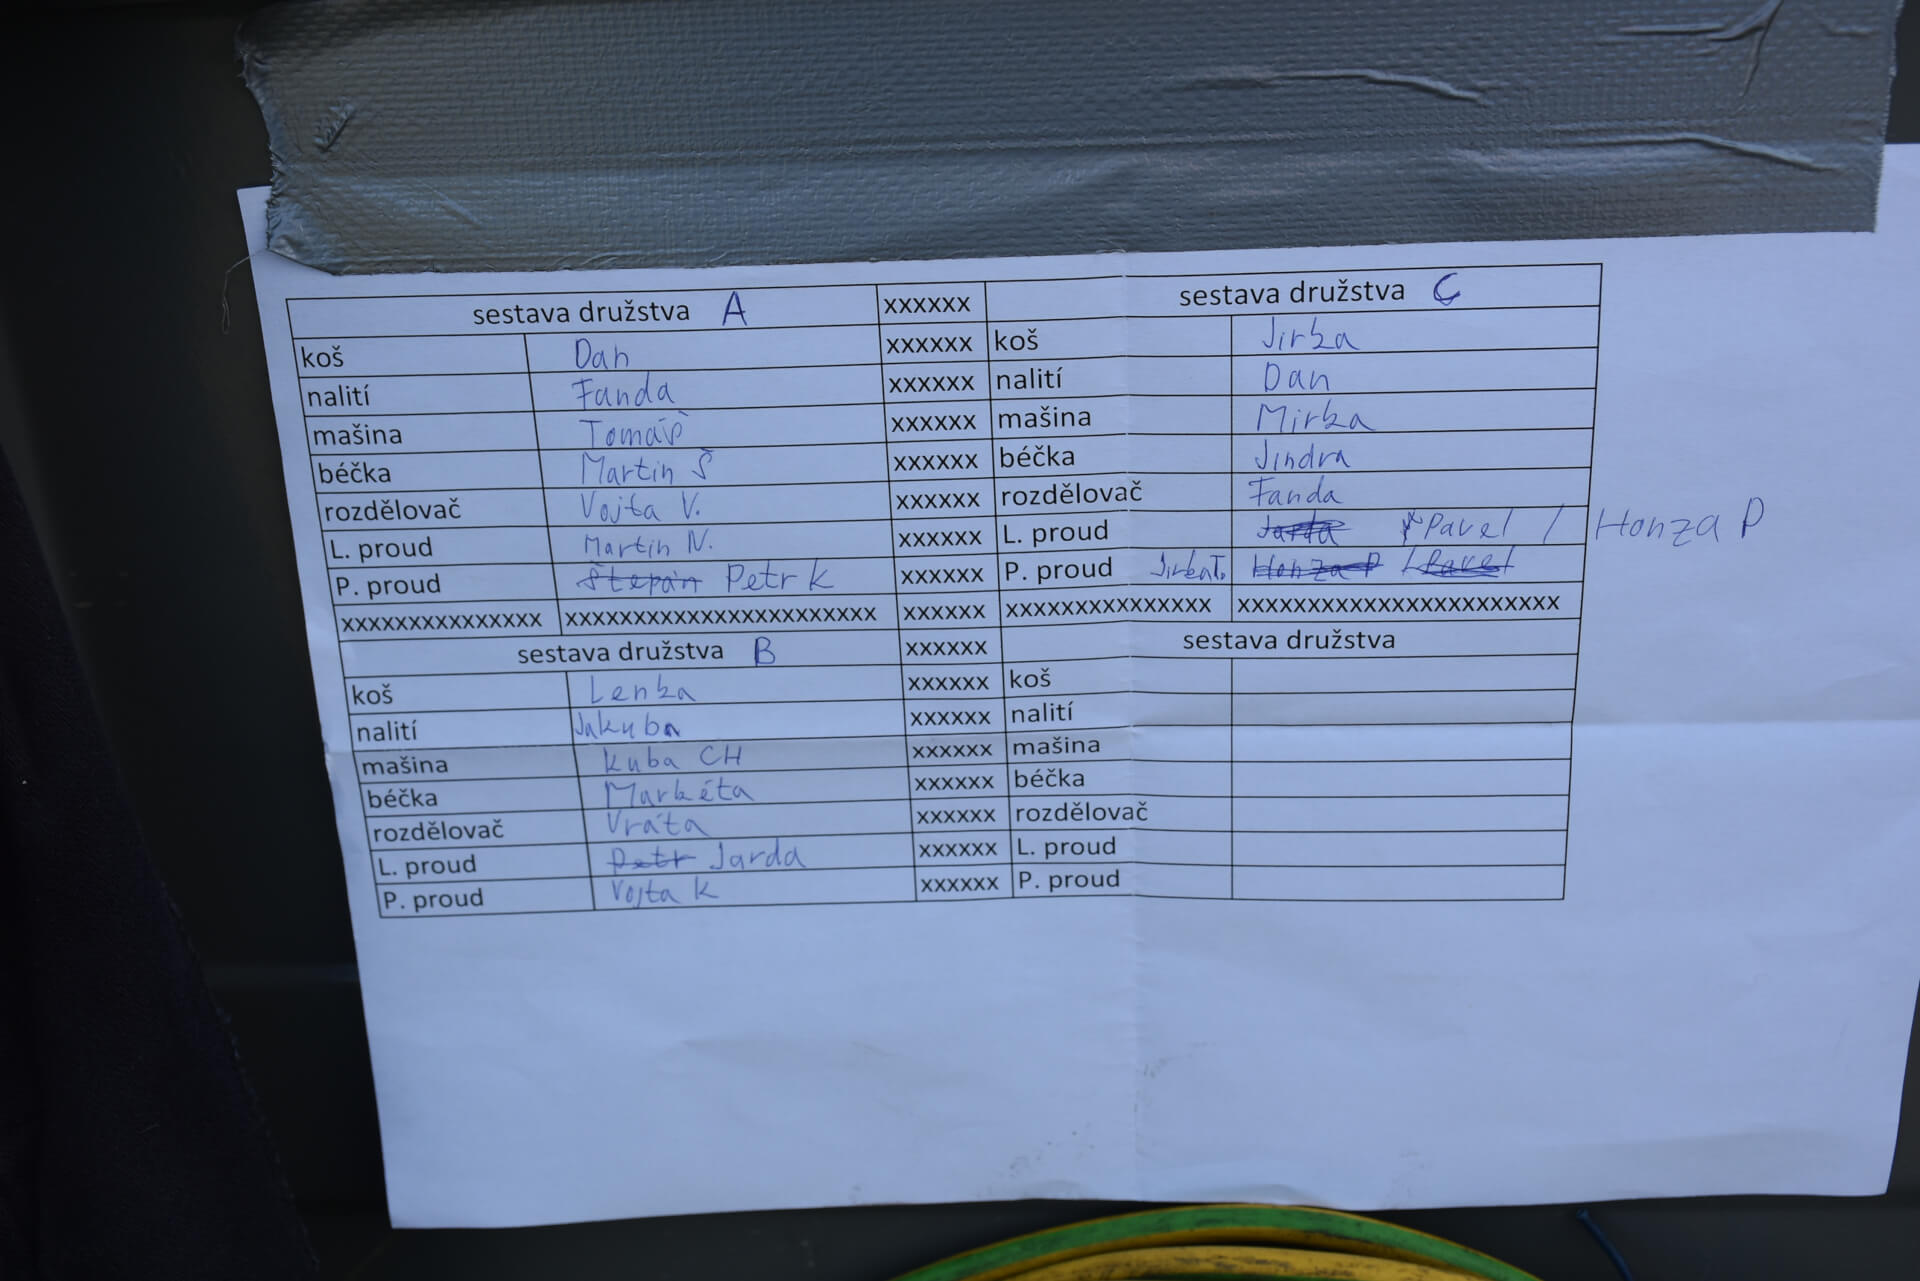 sestava družstva A xxxxxx sestava družstva C
koš Dan xxxxxx koš Jirka
nalití Fanda xxxxxx nalití Dan
mašina Tomáš xxxxxx mašina Mirka
béčka Martin Š xxxxxx béčka Jindra
rozdělovač Vojta V. xxxxxx rozdělovač Fanda
L. proud Martin N. xxxxxx L. proud Jarda Pavel / Honza P
P. proud Štepán Petr K xxxxxx P. proud Jirka T. Honza P / Pavel
xxxxxxxxxxxxxxx xxxxxxxxxxxxxxxxxxxxxxx xxxxxx xxxxxxxxxxxxxxx xxxxxxxxxxxxxxxxxxxxxxx
sestava družstva B xxxxxx sestava družstva
koš Lenka xxxxxx koš
nalití Jakuba xxxxxx nalití
mašina Kuba CH xxxxxx mašina
béčka Markéta xxxxxx béčka
rozdělovač Vráťa xxxxxx rozdělovač
L. proud Petr Jarda xxxxxx L. proud
P. proud Vojta K xxxxxx P. proud